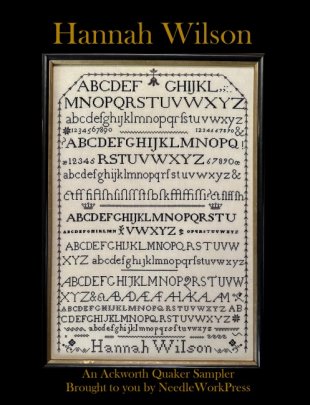 Hannah Wilson
ABCDEF GHIJKL
MNOPQRSTUVWXYZ
abcdefghijklmnopqrfstuvwxyz
1234567890 1234567890 &
ABCDEFGHIJKLMNOPQ
12345 RSTUVWXYZ 67890
abcdefghijklmnopqrfstuvwxyz&
ABCDEFGHIJKLMNOPQRSTU
ABCDEFGHIKLMN VWXYZ OPQRSTUVWXYZ
ABCDEFGHIJKLMNOPQRSTUVW
XYZ abcdefghijklmnopqrfstuvwxyz
ABCDEFGHIJKLMNOPQRSTUVW
XYZ&
ABCDEFGHIJKLMNOPQRSTUVWXYZ AB
CDEFGHIJKLMNOPQRSTUVWXYZ
abcdefghijklmnopqrfstuvwxyz
Hannah Wilson
An Ackworth Quaker Sampler
Brought to you by NeedleWorkPress